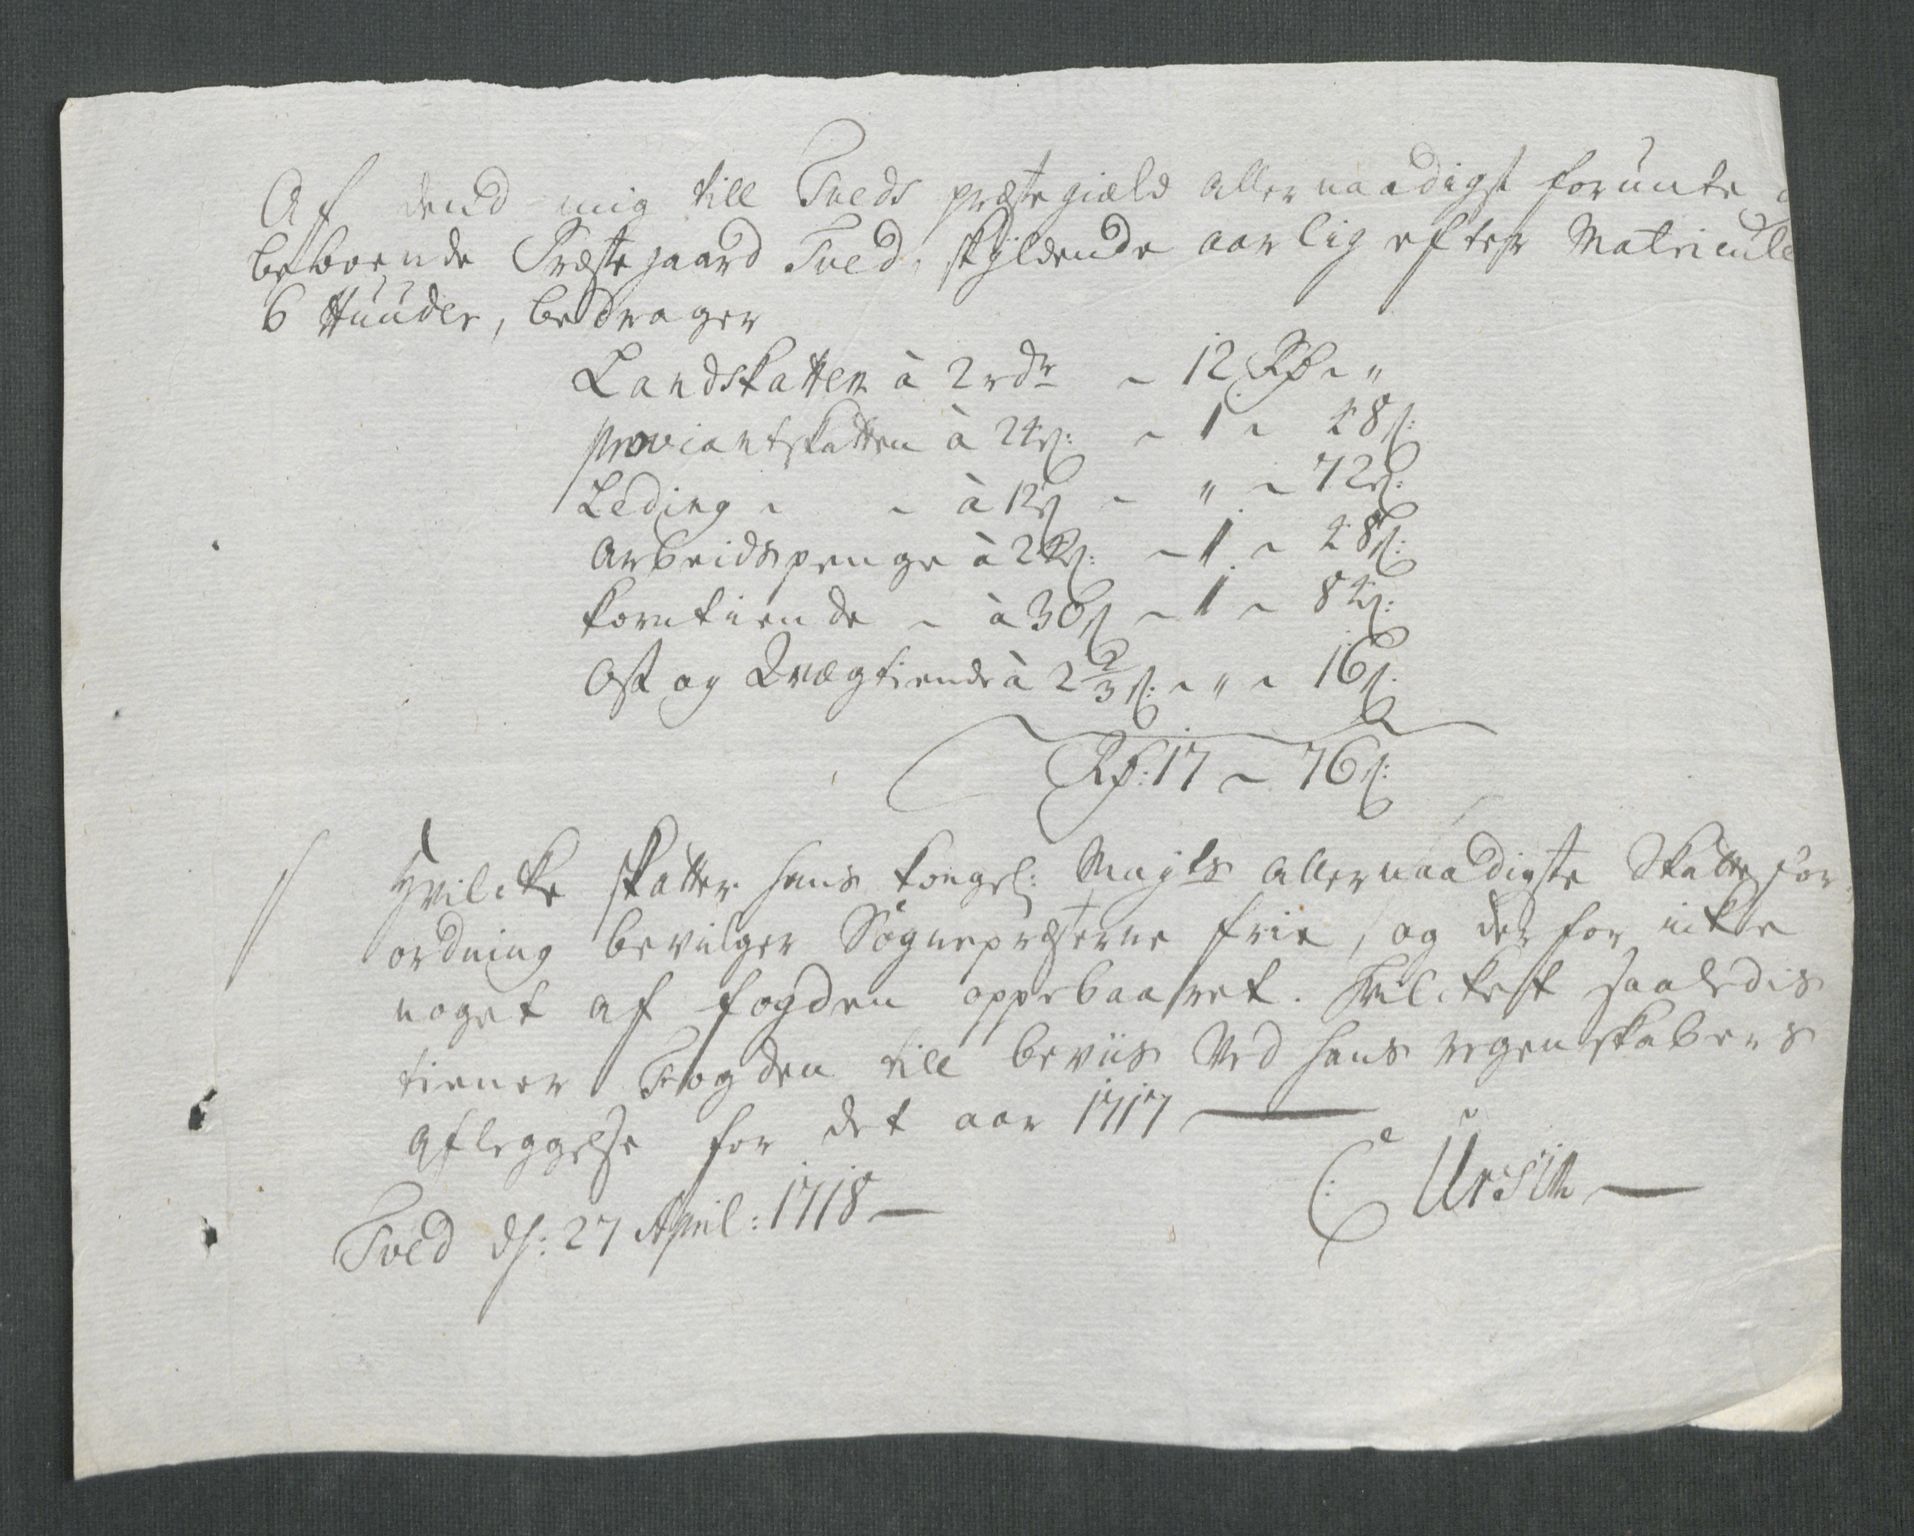 Af dend mig till Tveds præstegiæld allernaadigst forunte
beboende Præstegaard Tved, skyldende aarlig efter Matricule
6 Huuder, bedrager
Landskatten à 2 rdr ~ 12 Rd ~ "
Proviantskatten à 24 s: ~ 1 ~ 48 s:
Leding ~ ~ à 12 s ~ " ~ 72 s:
Arbeidspenge à 24 s: ~ 1 ~ 48 s:
Korntiende ~ à 30 s ~ 1 ~ 84 s:
Ost og Qvægtiende à 2 2/3 s: ~ " ~ 16 s:
Rd: 17 ~ 76 s:
Hvilcke skatter hans kongel: Mayts allernaadigste Skattefor-
ordning bevilger Sognepræsterne frie, og derfor icke
noget af fogden oppebaaret. Hvilcket saaledis
tiener Fogden till beviis ved hans regenskabers
Afleggelse for det aar 1717
C: Ursin
Tved ds: 27 April: 1718